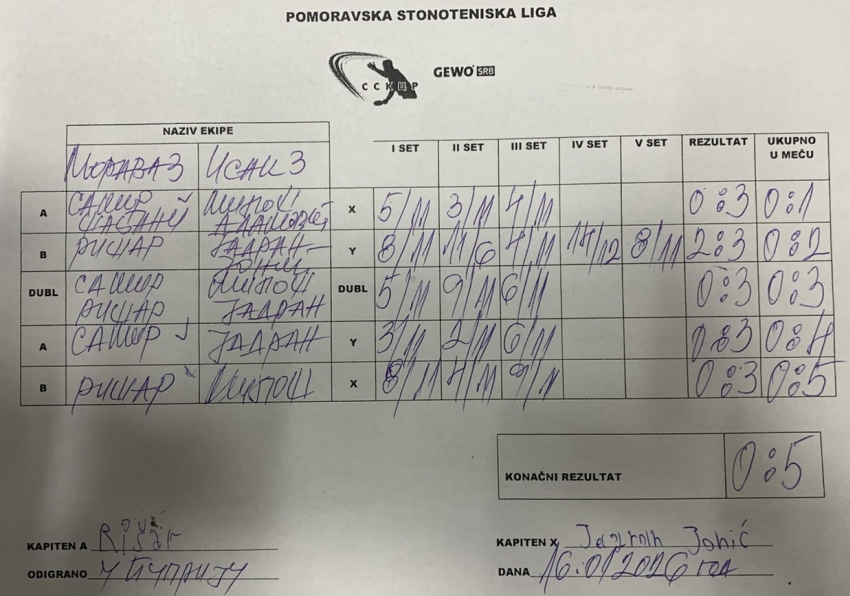 POMORAVSKA STONOTENISKA LIGA
ССКЦР GEWO SRB
NAZIV EKIPE
I SET II SET III SET IV SET V SET REZULTAT UKUPNO U MEČU
МОРАВА 3 ИСАИ 3
A САМИР X 5/11 3/11 4/11 0:3 0:1
B РИШАР ЈАДРАН Y 8/11 11/6 4/11 14/12 8/11 2:3 0:2
DUBL САМИР МИЛОШ DUBL 5/11 9/11 6/11 0:3 0:3
РИШАР ЈАДРАН
A САМИР ЈАДРАН Y 3/11 2/11 6/11 0:3 0:4
B РИШАР МИЛОШ X 8/11 4/11 9/11 0:3 0:5
KONAČNI REZULTAT 0:5
KAPITEN A Rišar
KAPITEN X Jonić
ODIGRANO У
DANA 16.01.2026 год